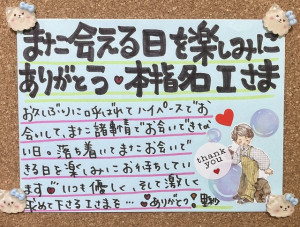 また会える日を楽しみに
ありがとう♥本指名Iさま
お久しぶりに呼ばれてハイペースでお
会いして、また諸事情でお会いできな
い日。落ち着いてまたお会いで
きる日を楽しみにお待ちしてい
ます♥いつも優しく、そして激しく
求めて下さるIさまを…♥ありがとう!
thank
you